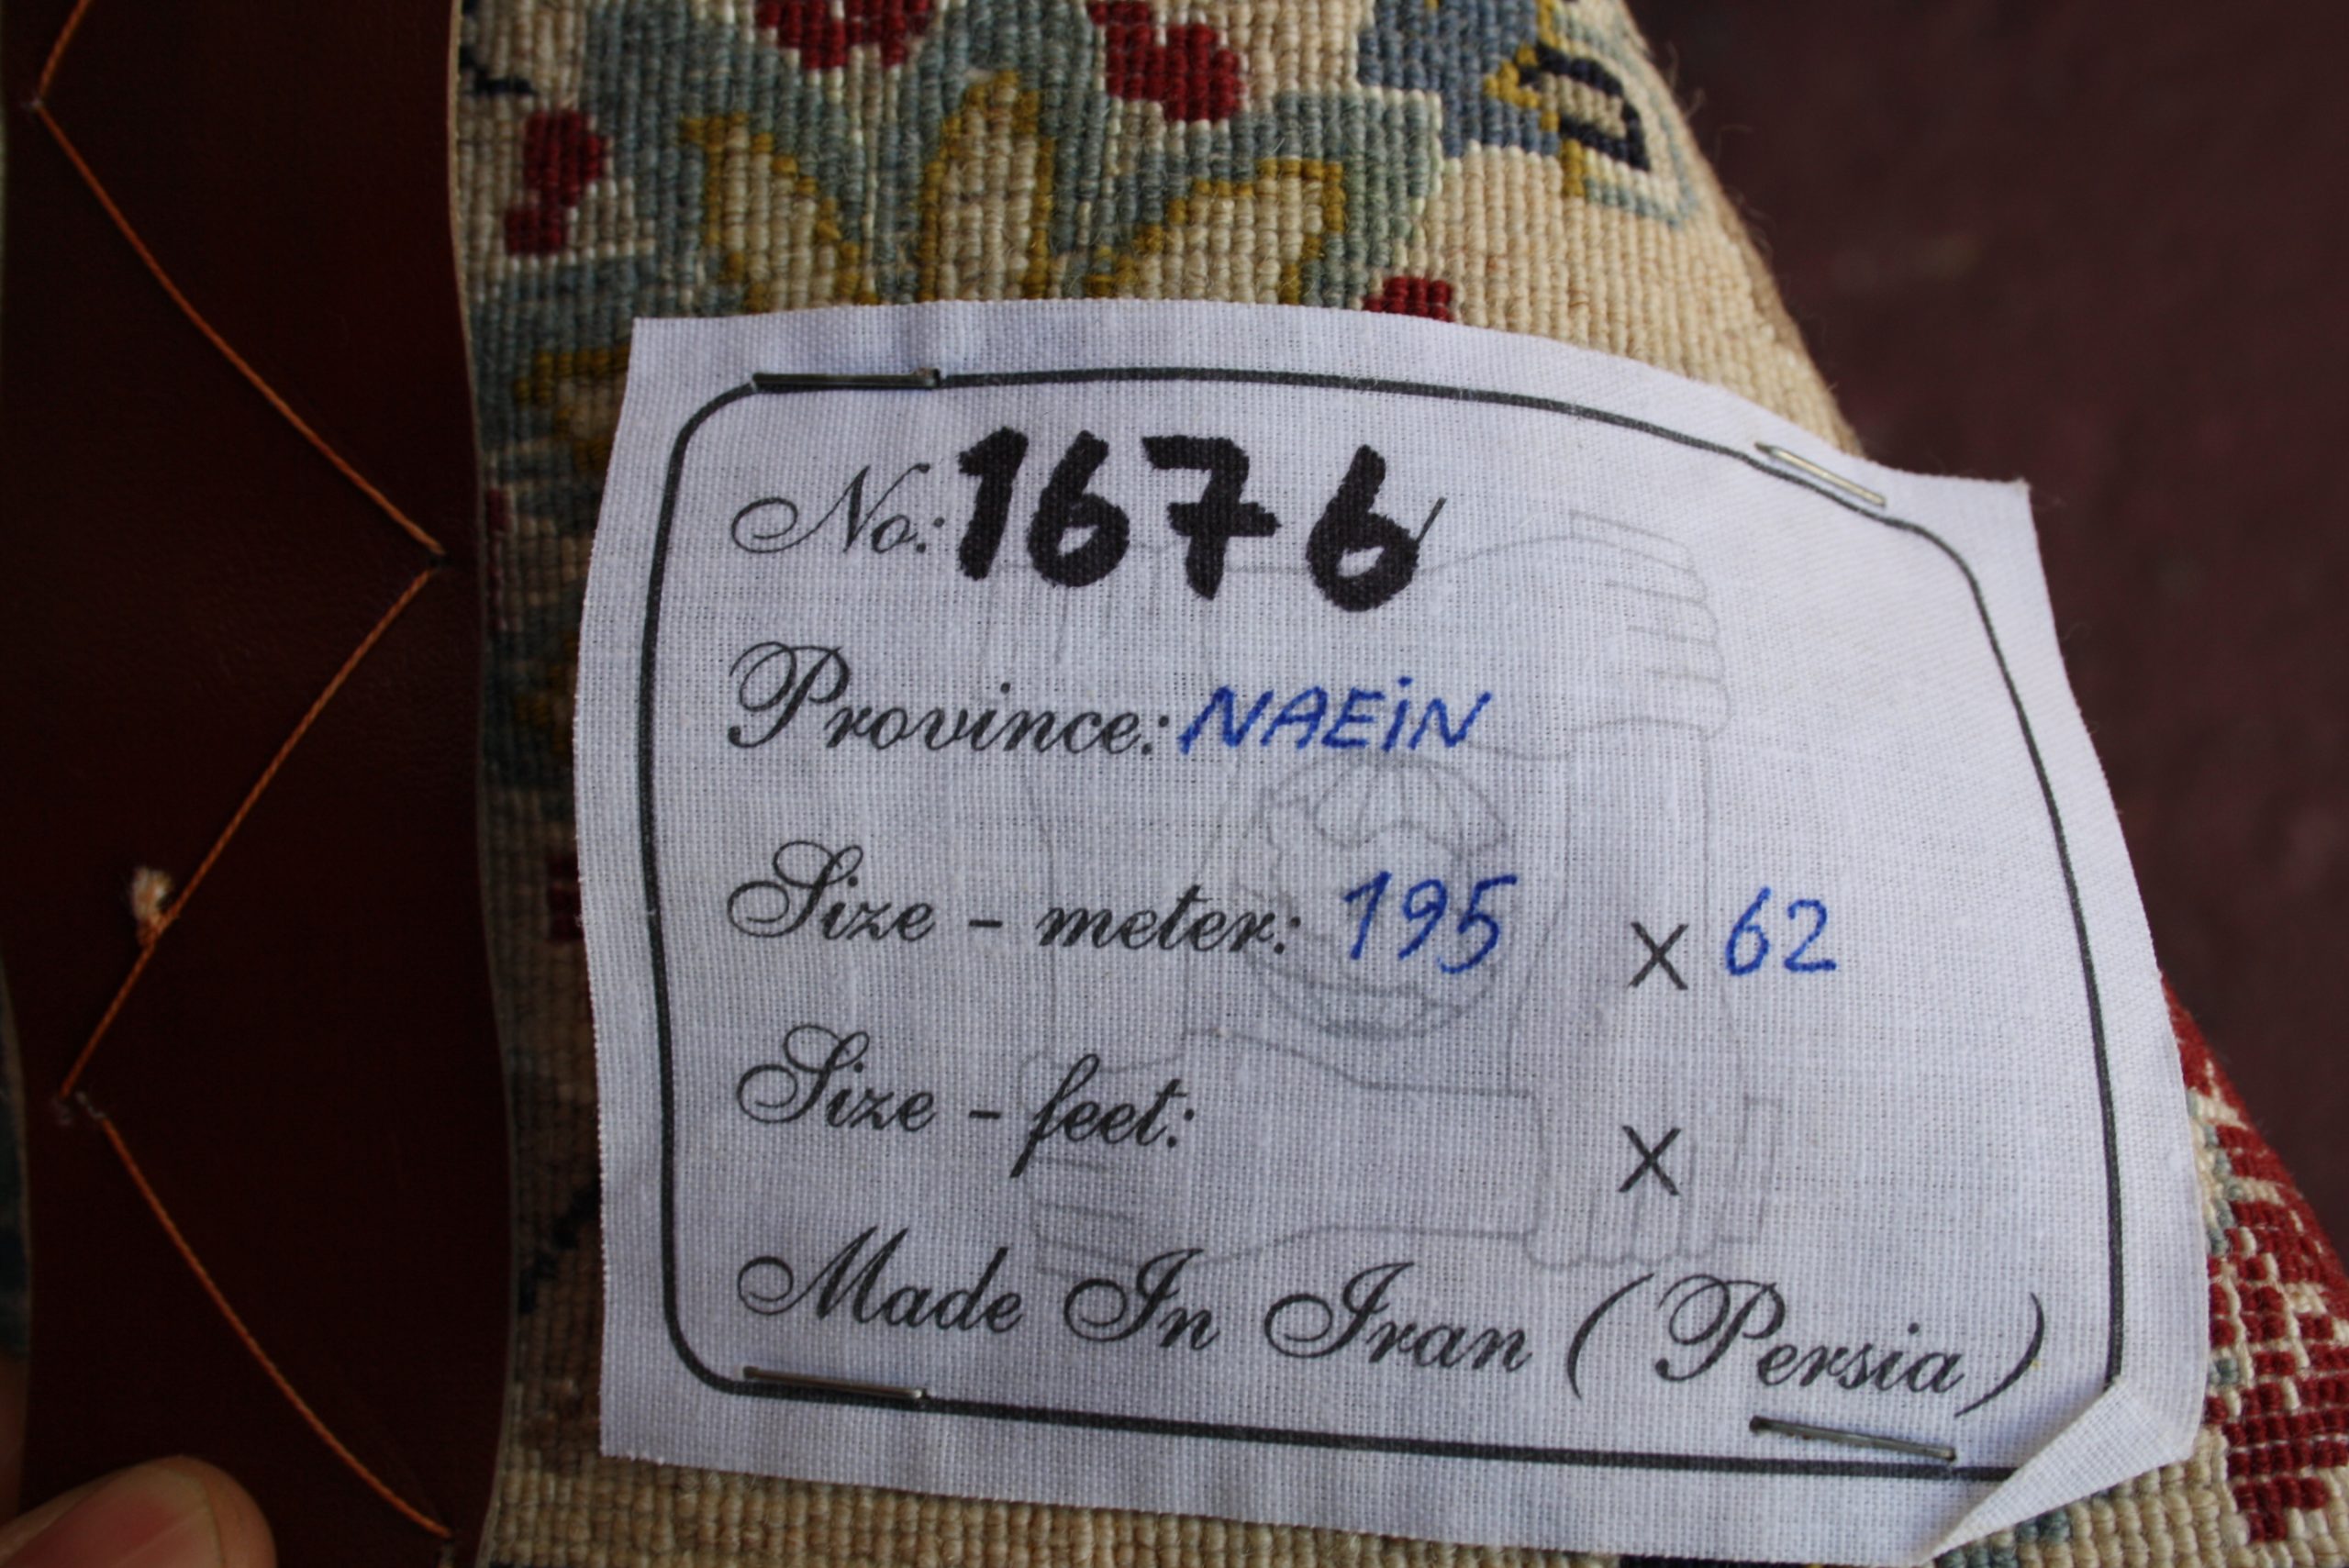 No: 1676
Province: NAEiN
Size - meter: 195 X 62
Size - feet: X
Made In Iran (Persia)